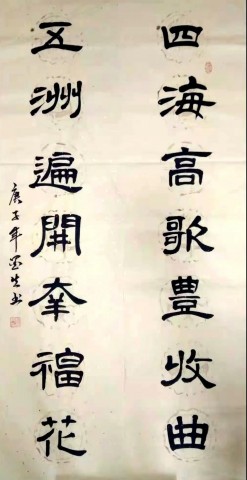 四海高歌豐收曲
五洲遍開幸福花
庚子年书